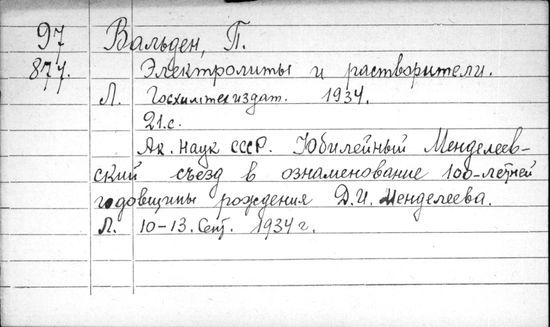 97 Вальден, П.
877. Электролиты и растворители.
Л. Госхимтехиздат. 1934.
21.с.
Ак. Наук СССР. Юбилейный Менделеев-
ский съезд в ознаменование 100-летней
годовщины рождения Д.И. Менделеева.
Л. 10-13. Сент. 1934 г.